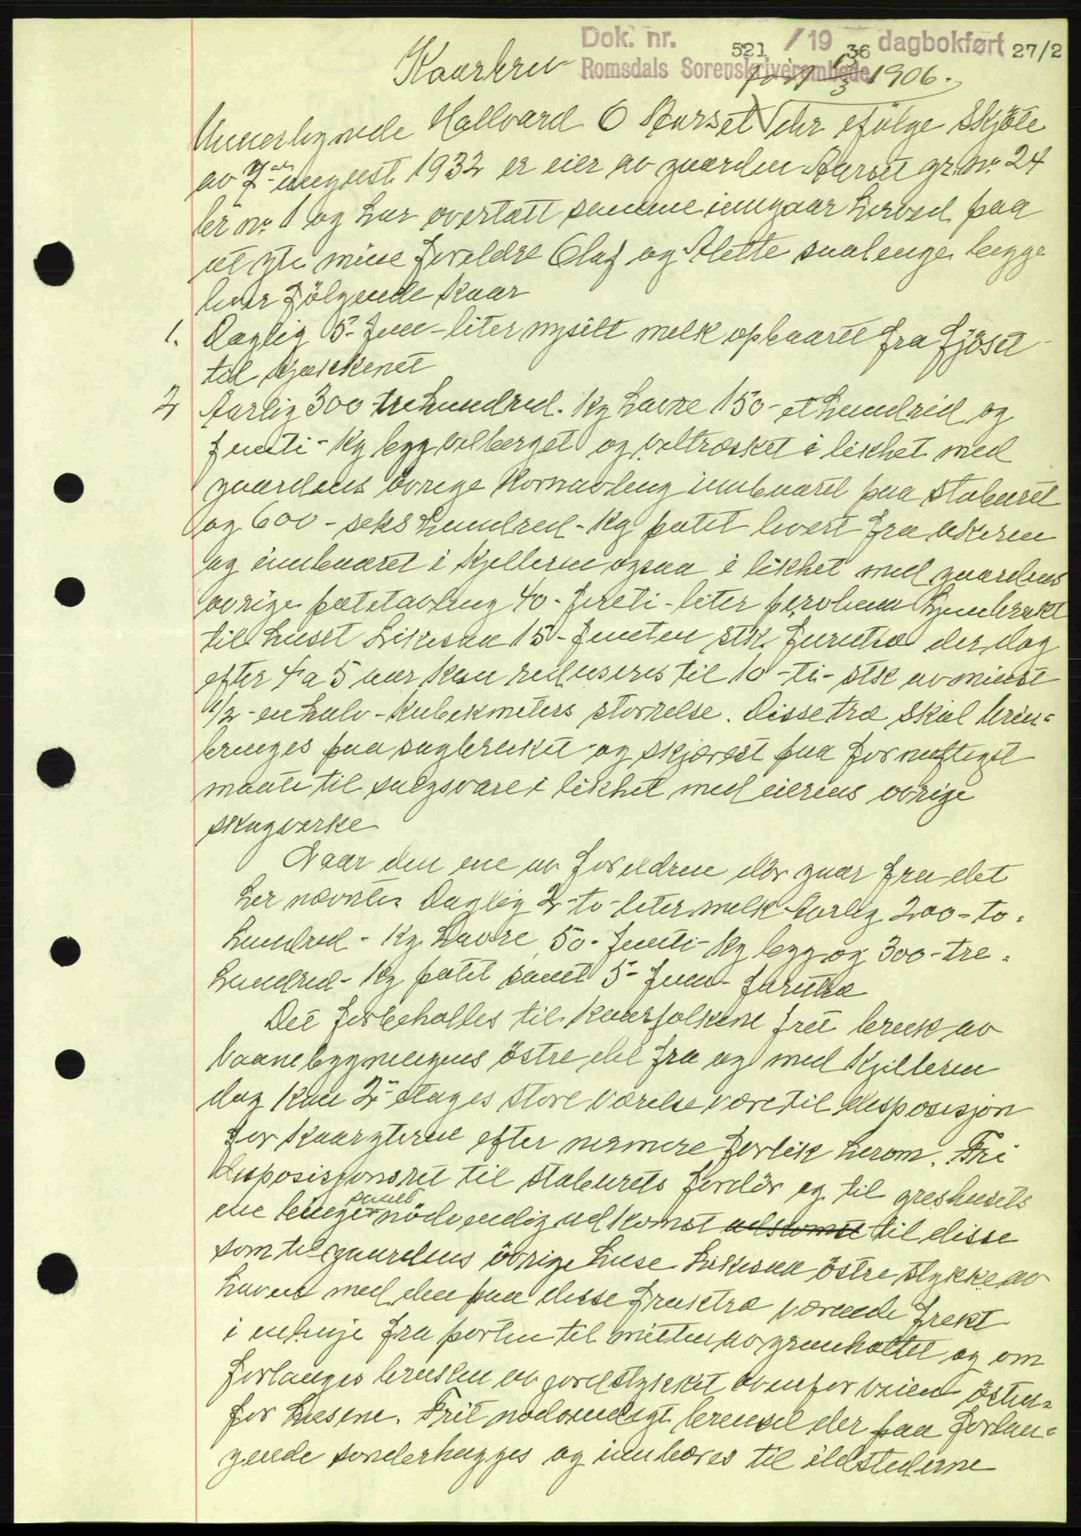 Dok. nr. 521 / 19 36 dagbokført 27/2
Romsdals Sorenskriverembede
Kaarbrev
født 13/3 1906.
Undertegnede Hallvard O Aarset der ifølge Skjöte
av 7de august 1932 er eier av gaarden Aarset gr. nr. 24
br nr. 1 og har overtatt samme inngaar herved paa
at yte mine foreldre Olaf og Alette saalenge begge
lever følgende Kaar
1. Daglig 5- fem- liter nysilt melk opbaaret fra fjöset
til kjøkkenet
2 Aarlig 300 trehundred. Kg havre 150- et hundred og
femti- Kg bygg velberget og veltrøsket i likhet med
gaardens övrige Kornavling innbaaret paa stabu­ret
og 600- seks hundred- Kg potet levert fra akeren
og innbaaret i kjelleren ogsaa i likhet med gaardens
övrige potetavling 40- firti- liter hjembrakt
til huset Likesaa 15- femten stk. furutræ der dog
efter 4 a 5 aar kan reduseres til 10- ti- stk av minst
1/2- en halv- Kubikmeters størrelse. Disse træ skal frem=
bringes paa sagbruket og skjæres paa fornuftigst
maate til salgsvare i likhet med eierens övrige
skogvirke
Naar den ene av foreldrene dör gaar fra det
her nevnte: Daglig 2- to- liter melk Aarlig 200- to=
hundred- Kg havre, 50- femti- Kg bygg og 300- tre=
hundred- Kg potet samt 5- fem- furutræ
Det forbeholdes til Kaarfolkene frit bruk av
vaanebygningens östre del fra og med Kjelleren
dog kan 2den etages store værelse være til disposisjon
for Kaaryteren efter nærmere forlik herom. Fri
disposisjonsret til stabu­rets fordör og til grishusets
ene binge samt nödvendig adkomst adkomst til disse
som til gaardens övrige huse Likesaa östre stykke av
haven med den paa disse fruktræ værende frukt
i en linje fra porten til midten av og om
forlanges bruken av jordstykket ovenfor veien östen=
for husene. Frit nödvendigt brensel der paa forlan=
gende sønderhugges og innbæres til ildstederne